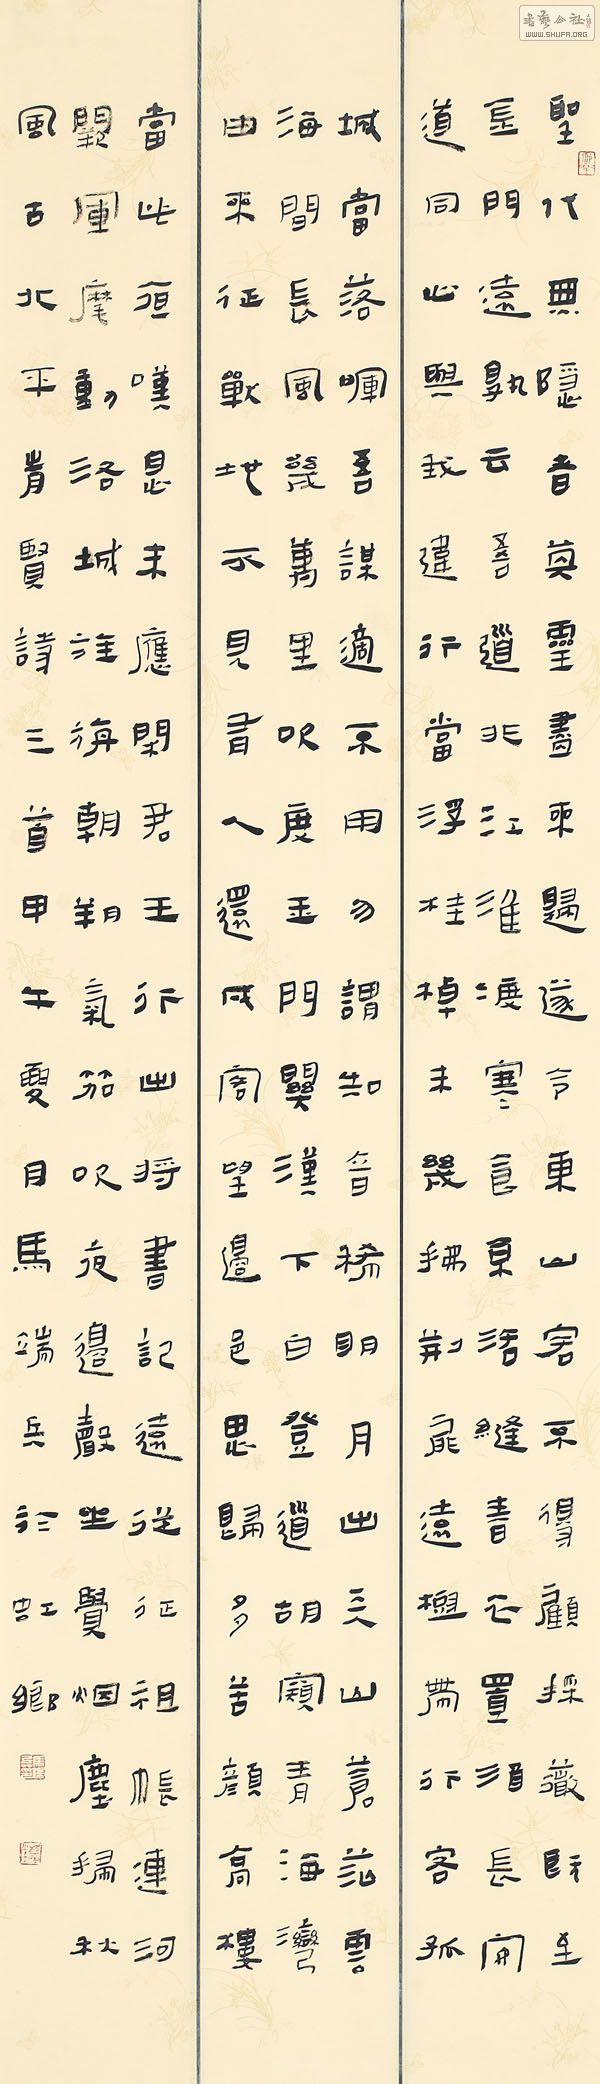 聖代無隱者英靈盡來歸遂令東山客不得顧採薇既至
金門遠孰云吾道非江淮渡寒食京洛縫春衣置酒長安
道同心與我違行當浮桂棹未幾拂荊扉遠樹帶行客孤
城當落暉吾謀適不用勿謂知音稀明月出天山蒼茫雲
海間長風幾萬里吹度玉門關漢下白登道胡窺青海灣
由來征戰地不見有人還戍客望邊邑思歸多苦顏高樓
當此夜嘆息未應閑君王行出將書記遠從征祖帳連河
闕軍麾動洛城旌旃朝朔氣笳吹夜邊聲坐覺烟塵掃秋
風古北平昔賢詩三首甲午夏月馬端兵於虹鄉
WWW.SHUFA.ORG